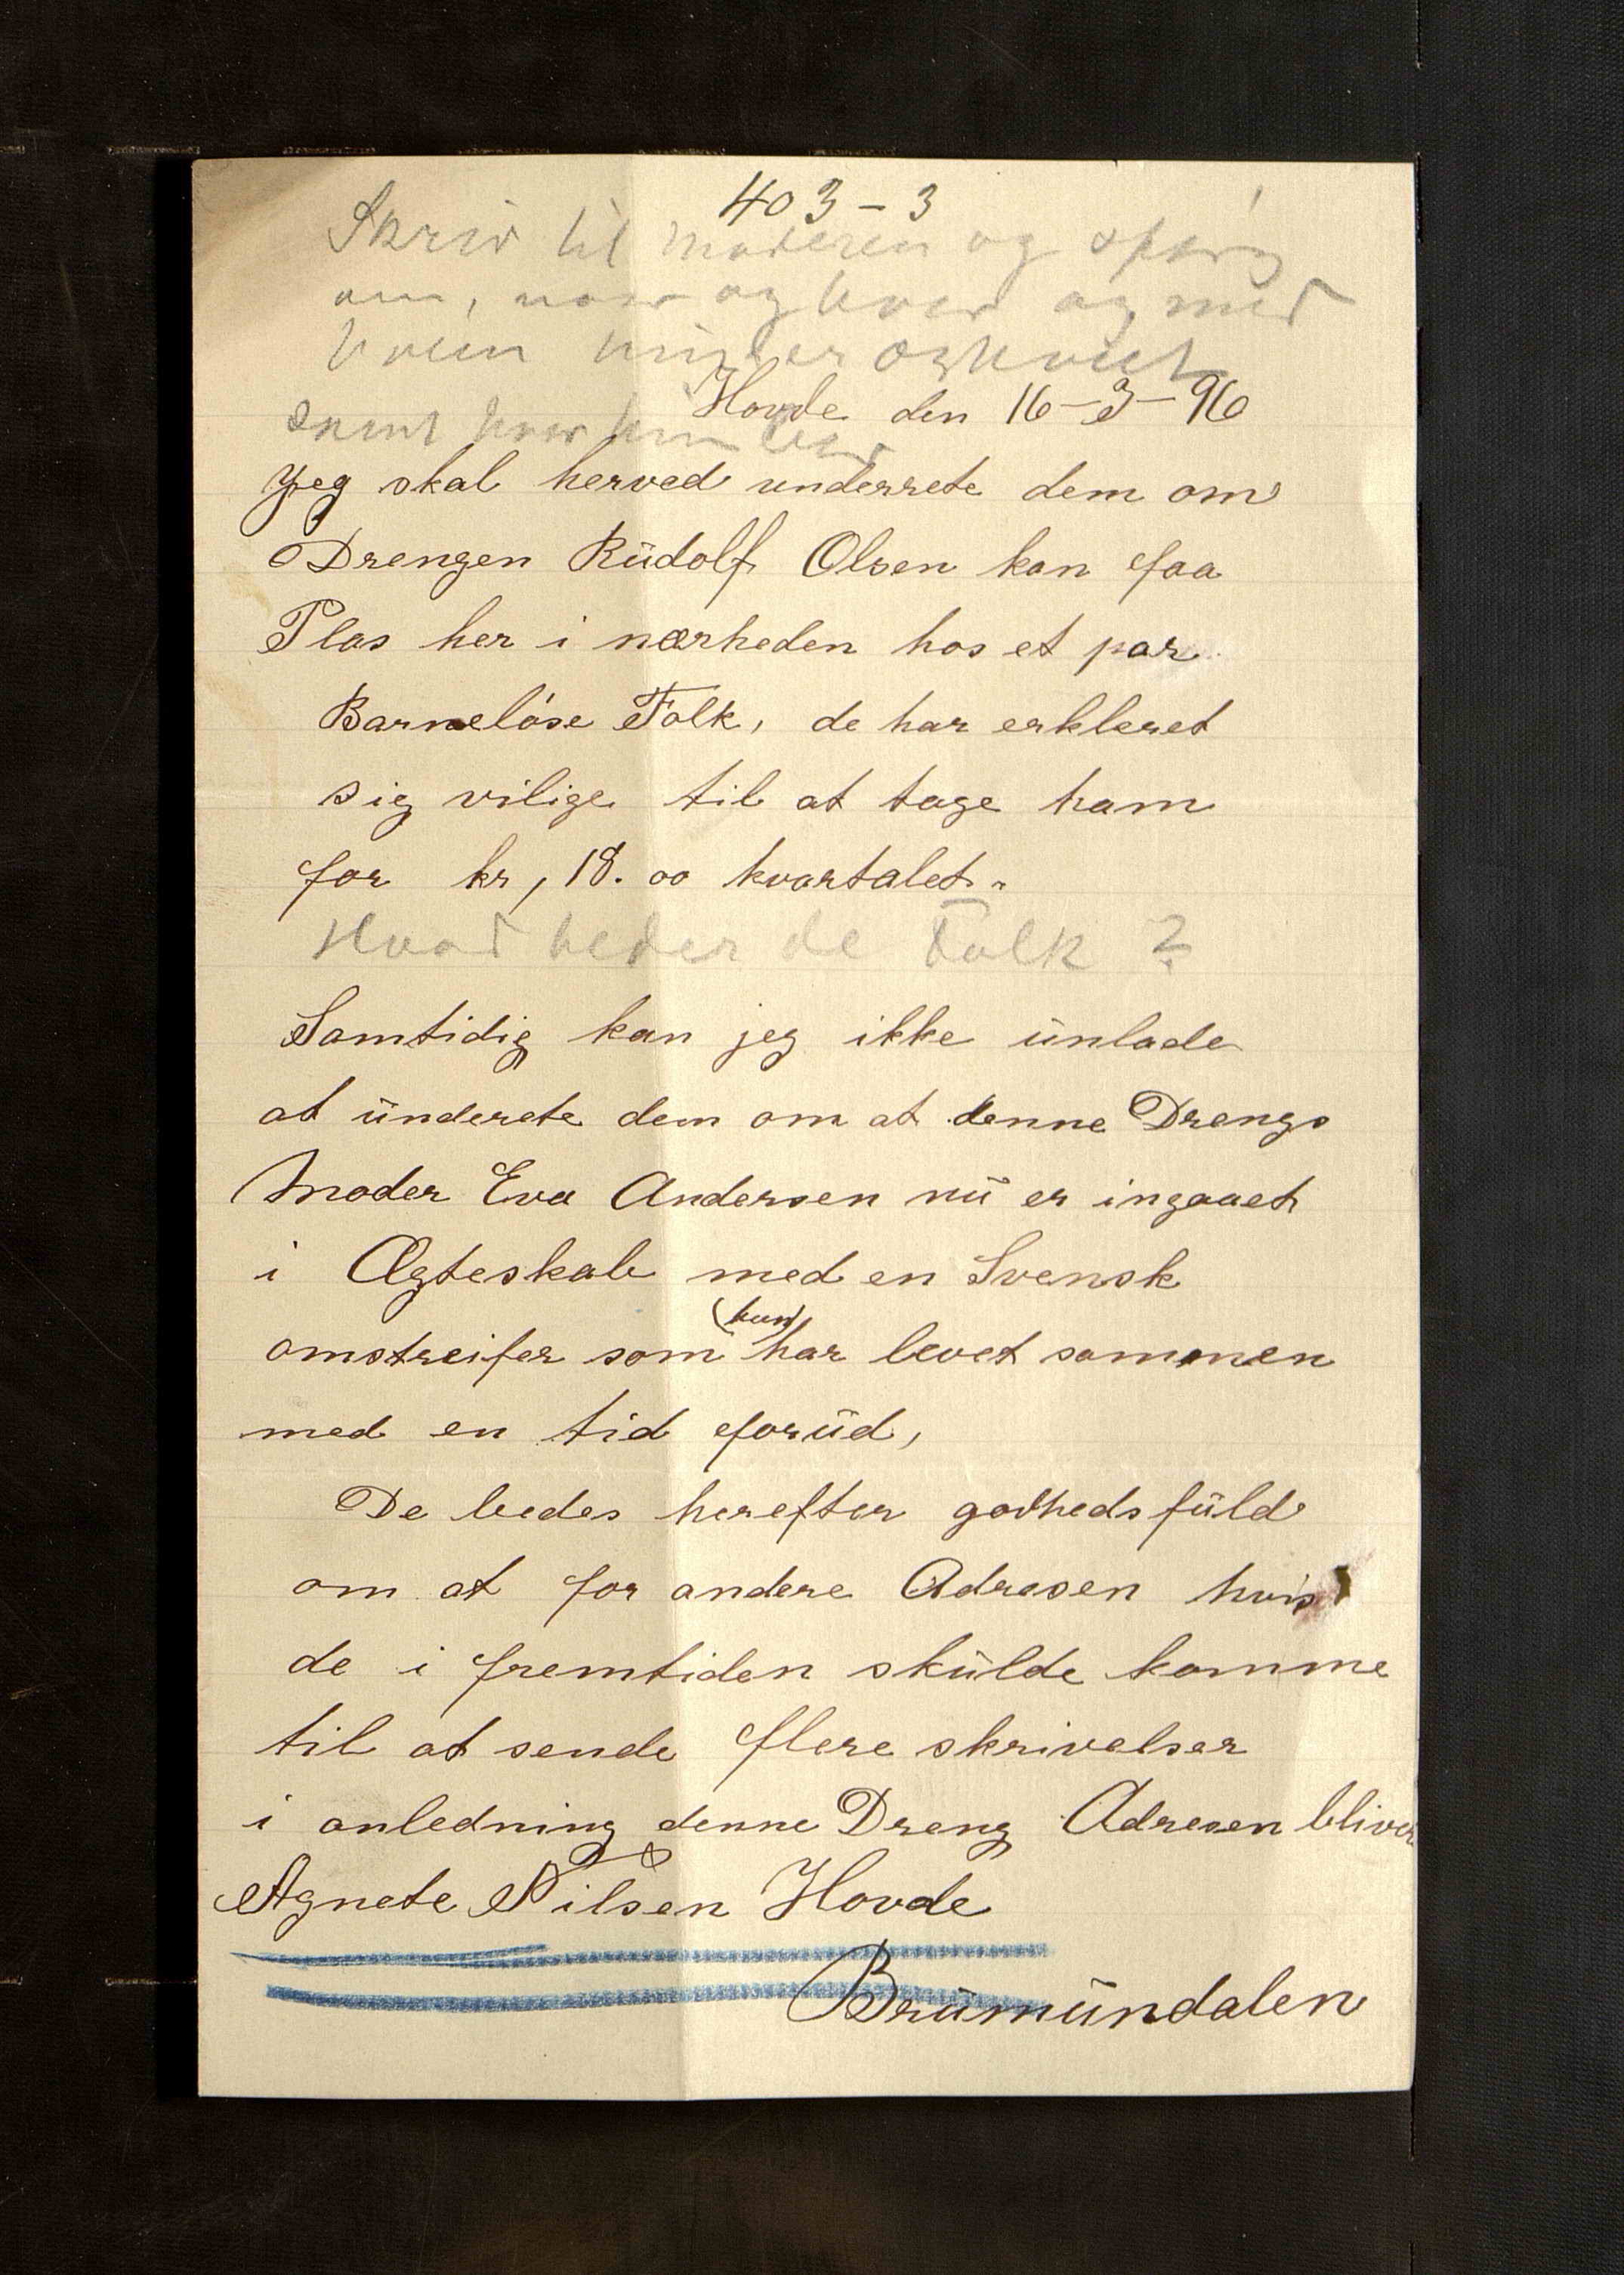 403-3
Skriv til moderen og spørg
om, naar og hvor og med
hvem hun er
Hovde den 16-3-96
samt hvor hun
Jeg skal herved underrete dem om
Drengen Rüdolf Olsen kan faa
Plas her i nærheden hos et par
Barneløse Folk, de har erkleret
sig vilige til at tage ham
for kr, 18.00 kvartalet.
Hvad heder de Folk?
Samtidig kan jeg ikke ünlade
at ünderete dem om at denne Drengs
Moder Eva Andersen nü er ingaaet
i Ægteskab med en Svensk
omstreifer som (hun) har levet sammen
med en tid forüd,
De bedes herefter godhedsfüld
om at for andere Adresen hvis
de i fremtiden skülde komme
til at sende flere skrivelser
i anledning denne Dreng Adresen bliver
Agnete Nilsen Hovde
Brümündalen